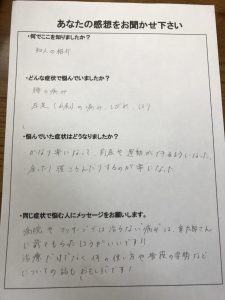 あなたの感想をお聞かせ下さい
・何でここを知りましたか?
知人の紹介
・どんな症状で悩んでいましたか?
腰の痛み
左足(右側)の痛み、しびれ、はり
・悩んでいた症状はどうなりましたか?
かなり楽になって、前屈や運動ができるようになった。
座ったり寝ころんだりするのが楽になった。
・同じ症状で悩む人にメッセージをお願いします。
病院やマッサージでは治らない痛みは、
に診てもらったほうがいいです!!
治療だけでなく体の使い方や普段の姿勢など
についての話もおもしろいです!